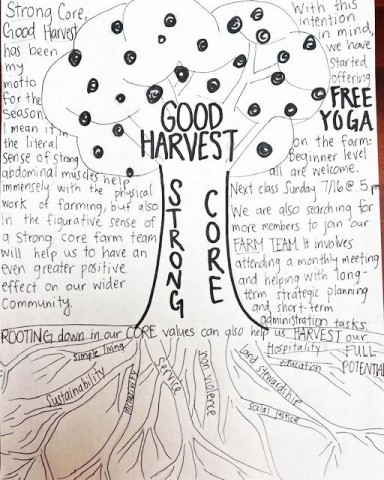 Strong Core,
Good Harvest
has been
my
motto
for the
season.
I mean it in
the literal
sense of strong
abdominal muscles help
immensely with the physical
work of farming, but also
in the figurative sense of
a strong core farm team
will help us to have an
even greater positive
effect on our wider
Community.
GOOD
HARVEST
STRONG
CORE
With this
intention
in mind,
we have
started
offering
FREE
YOGA
on the farm:
Beginner level
all are welcome.
Next class Sunday 7/16 @ 5 pm
We are also searching for
more members to join our
FARM TEAM. It involves
attending a monthly meeting
and helping with long-
term strategic planning
and short-term
administration tasks.
ROOTING down in our CORE values can also help us HARVEST our
FULL
POTENTIAL
simple living
Sustainability
integrity
Service
non violence
Land Stewardship
Hospitality
education
social justice